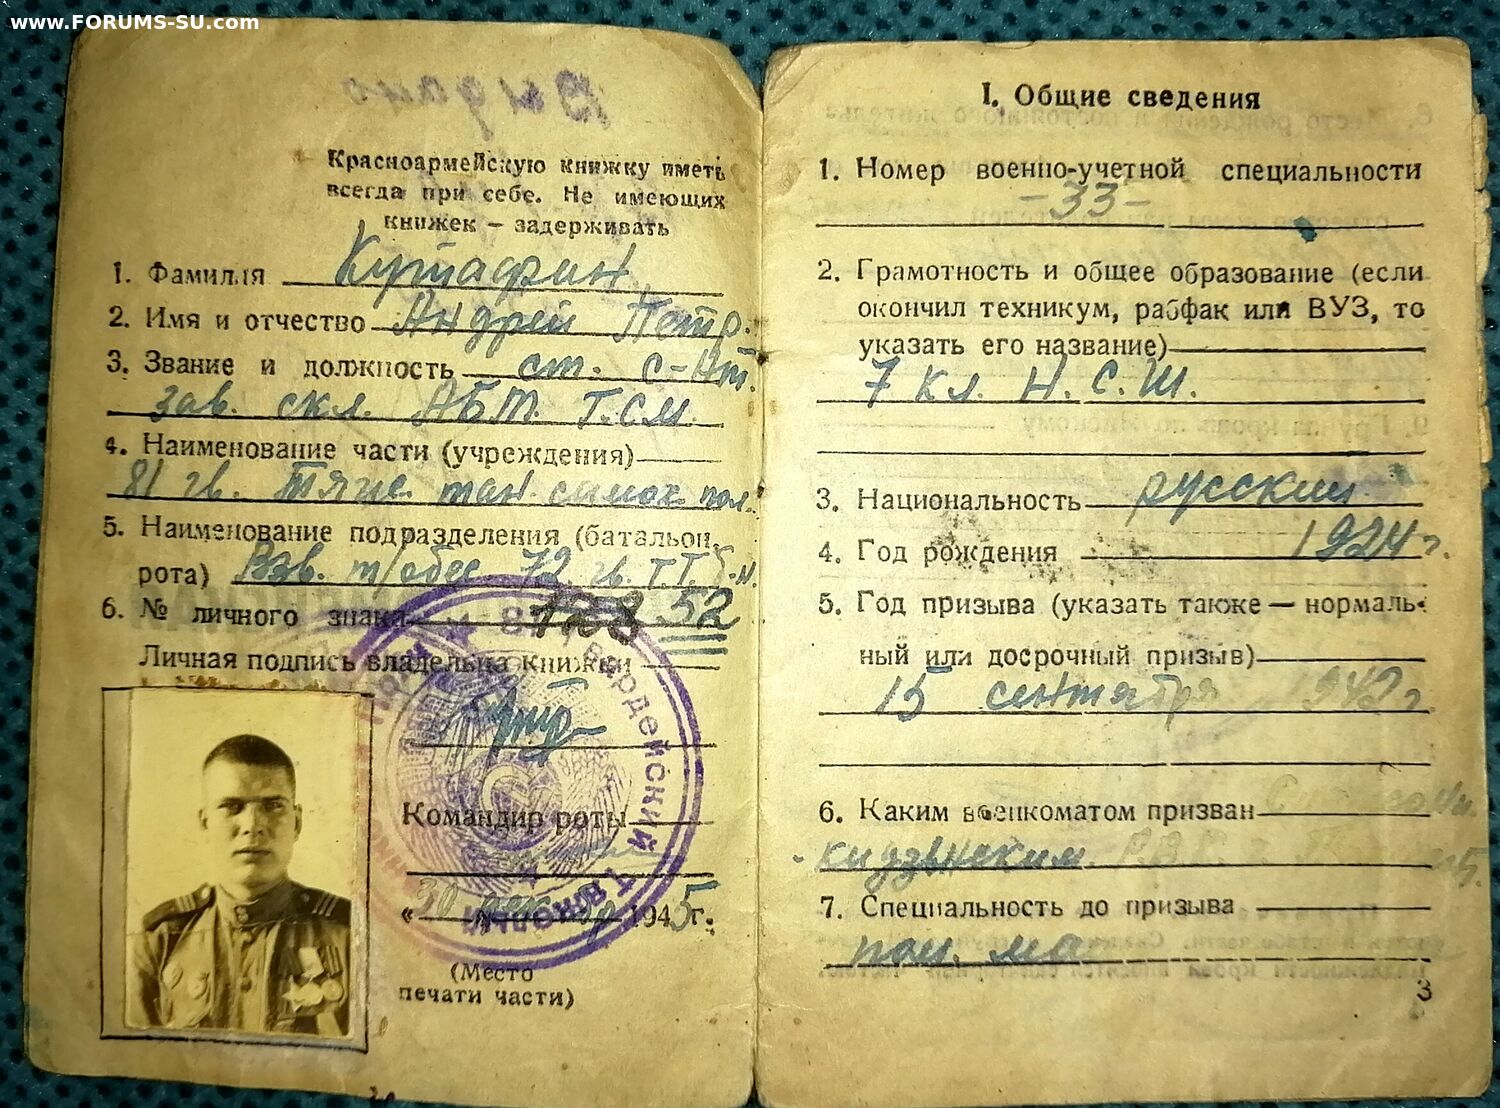 www.FORUMS-SU.com
Красноармейскую книжку иметь
всегда при себе. Не имеющих
книжек — задерживать
1. Фамилия Кутафин
2. Имя и отчество Андрей Петр.
3. Звание и должность ст. с-нт.
зав. скл. АБТ. Г.С.М.
4. Наименование части (учреждения)
81 гв. тяж. тан. самох. пол.
5. Наименование подразделения (батальон,
рота) Взв. т/обес. 72 гв. Т.Т.б-н.
6. № личного знака 52
Личная подпись владельца книжки
Командир роты
« 30 1945 г.
(Место
печати части)
Гвардейский
I. Общие сведения
1. Номер военно-учетной специальности
-33-
2. Грамотность и общее образование (если
окончил техникум, рабфак или ВУЗ, то
указать его название)
7 кл. Н. С. Ш.
3. Национальность русский
4. Год рождения 1924 г.
5. Год призыва (указать также — нормаль-
ный или досрочный призыв)
15 сентября 1942 г.
6. Каким военкоматом призван
7. Специальность до призыва
3